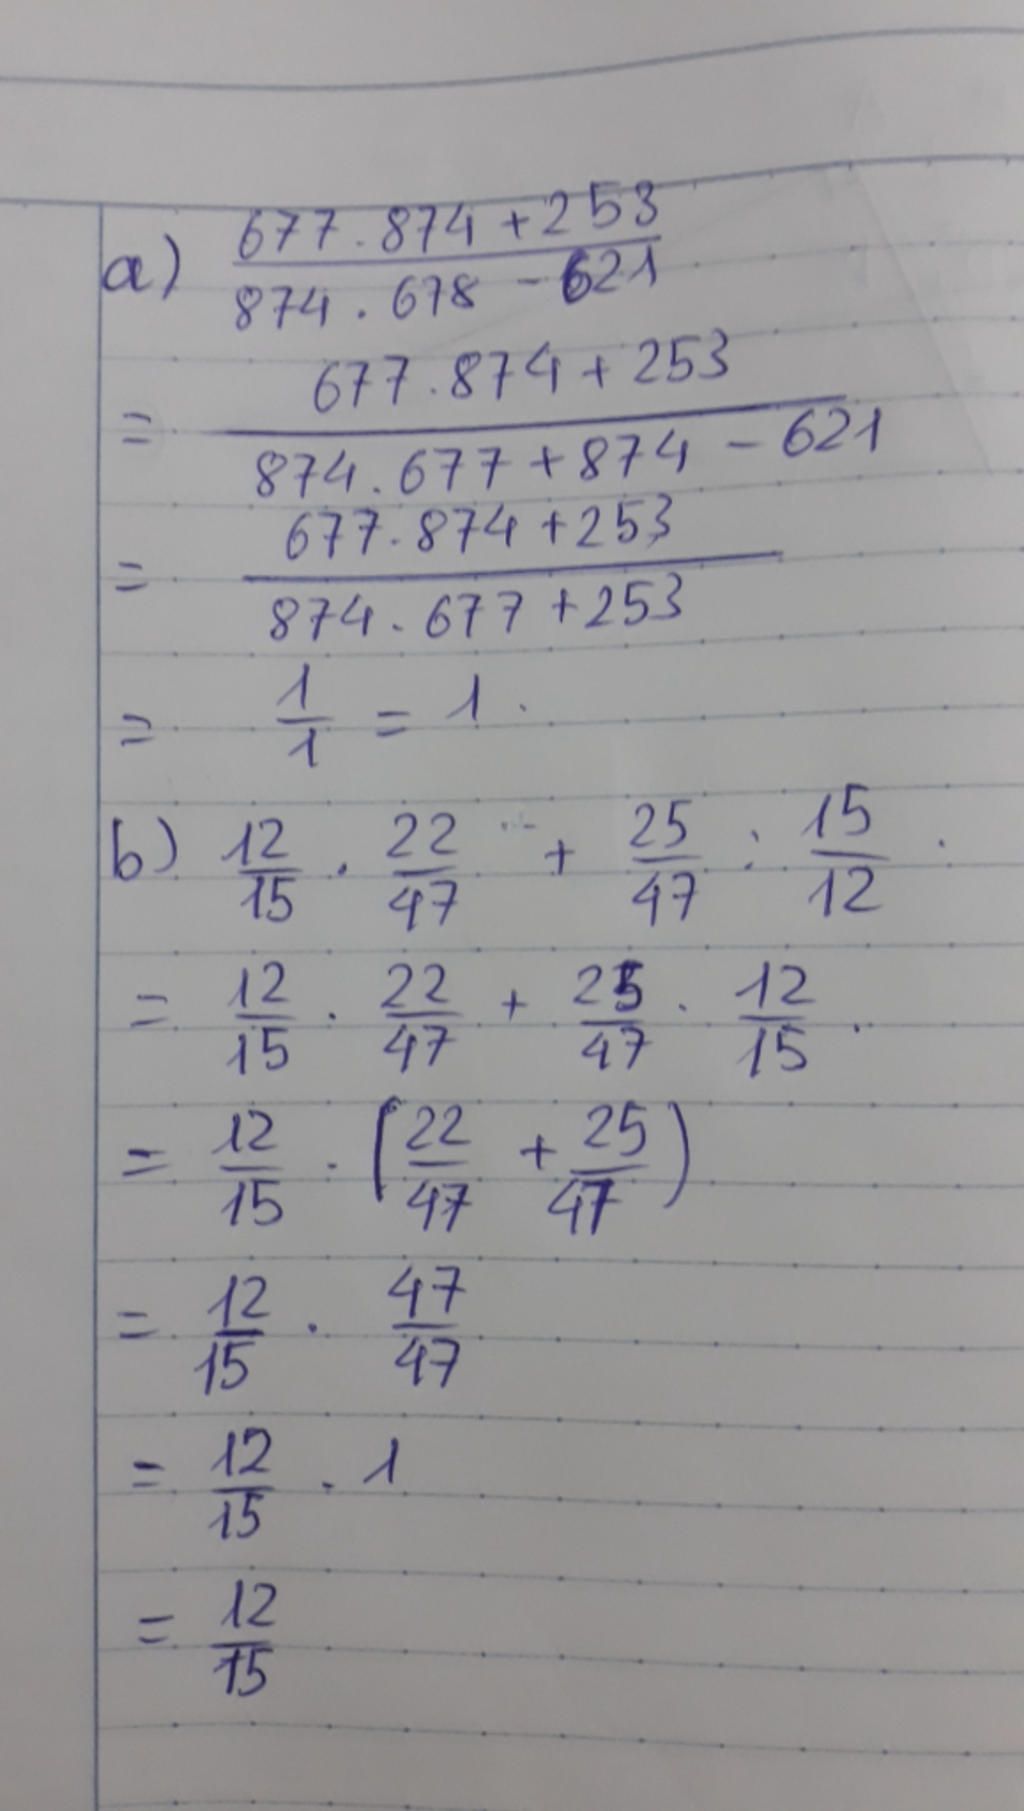 a) 677.874+253
874.678-621
= 677.874+253
874.677+874-621
= 677.874+253
874.677+253
= 1/1 = 1.
b) 12/15 . 22/47 + 25/47 : 15/12 .
= 12/15 . 22/47 + 25/47 . 12/15 .
= 12/15 . (22/47 + 25/47)
= 12/15 . 47/47
= 12/15 . 1
= 12/15